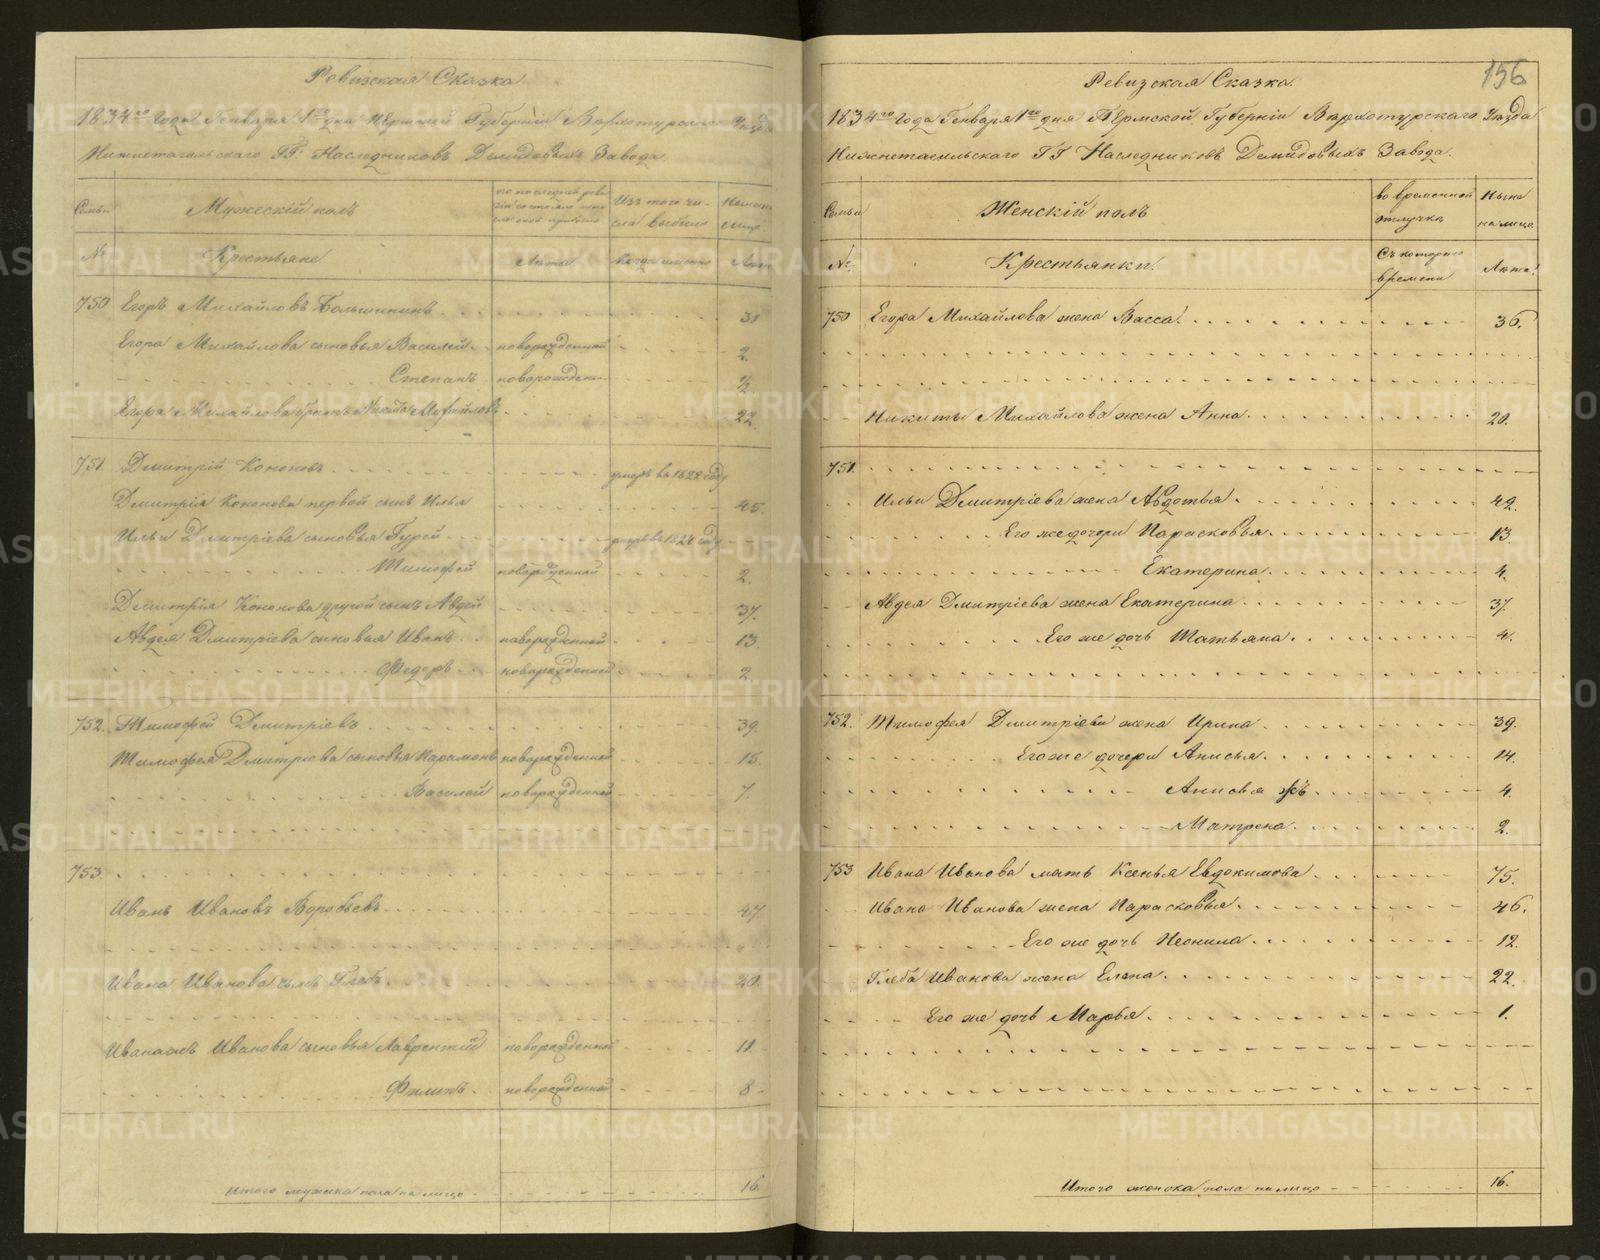 Ревизская Сказка
1834го Года Генваря 1го дня Пермской Губерніи Верхотурскаго Уезда
Нижнетагильскаго ГГ: Наследниковъ Демидовыхъ Завода
Семьи Мужескій полъ по последней реви Изъ того чи- Ныне на
зіи состояло сла выбыло лицо
№ Крестьяне Лета Когда имянно Лета
750 Егоръ Михайловъ 31
Егора Михайлова сыновья Василей новорожденной 2.
Степанъ новорожден ½
Егора Михайлова братъ Никита Михайловъ 22
751 Дмитрій Кононовъ умеръ въ 1828 году
Дмитрія Кононова первой сынъ Илья 45.
Ильи Дмитріева сыновья Гурей умеръ въ году
Тимофей новорожденной 2.
Дмитрія Кононова другой сынъ Авдей 37.
Авдея Дмитріева сыновья Иванъ новорожденной 13
Федоръ новорожденной 2
752. Тимофей Дмитріевъ 39.
Тимофея Дмитріева сыновья Парамонъ новорожденной 15.
Василей новорожденной 7.
753.
Иванъ Ивановъ Воробьевъ 47
Ивана Иванова сынъ Глебъ 20.
Иванажъ Иванова сыновья Лаврентій новорожденной 11
Филипъ новорожденной 8
Итого мужска пола на лицо 16.
156
Ревизская Сказка.
1834го Года Генваря 1го дня Пермской Губерніи Верхотурскаго Уезда
Нижнетагильскаго ГГ Наследниковъ Демидовыхъ Завода.
Семьи Женскій полъ во временной Ныне
отлучке на лицо
№ Крестьянки. Съ котораго Лета
времени
750 Егора Михайлова жена Васса. 36.
Никиты Михайлова жена Анна. 20.
751.
Ильи Дмитріева жена Авдотья. 42.
Его же дочери Парасковья. 13
Екатерина. 4.
Авдея Дмитріева жена Екатерина 37
Его же дочь Татьяна. 4.
752. Тимофея Дмитріева жена Ирина. 39.
Его же дочери Анисья. 14.
Анисья жъ. 4.
Матрена. 2.
753 Ивана Иванова мать Ксенья Евдокимова 75.
Ивана Иванова жена Парасковья. 46.
Его же дочь Неонила. 12.
Глеба Иванова жена Елена. 22.
Его же дочь Марья. 1.
Итого женска пола на лицо 16.
METRIKI.GASO-URAL.RU